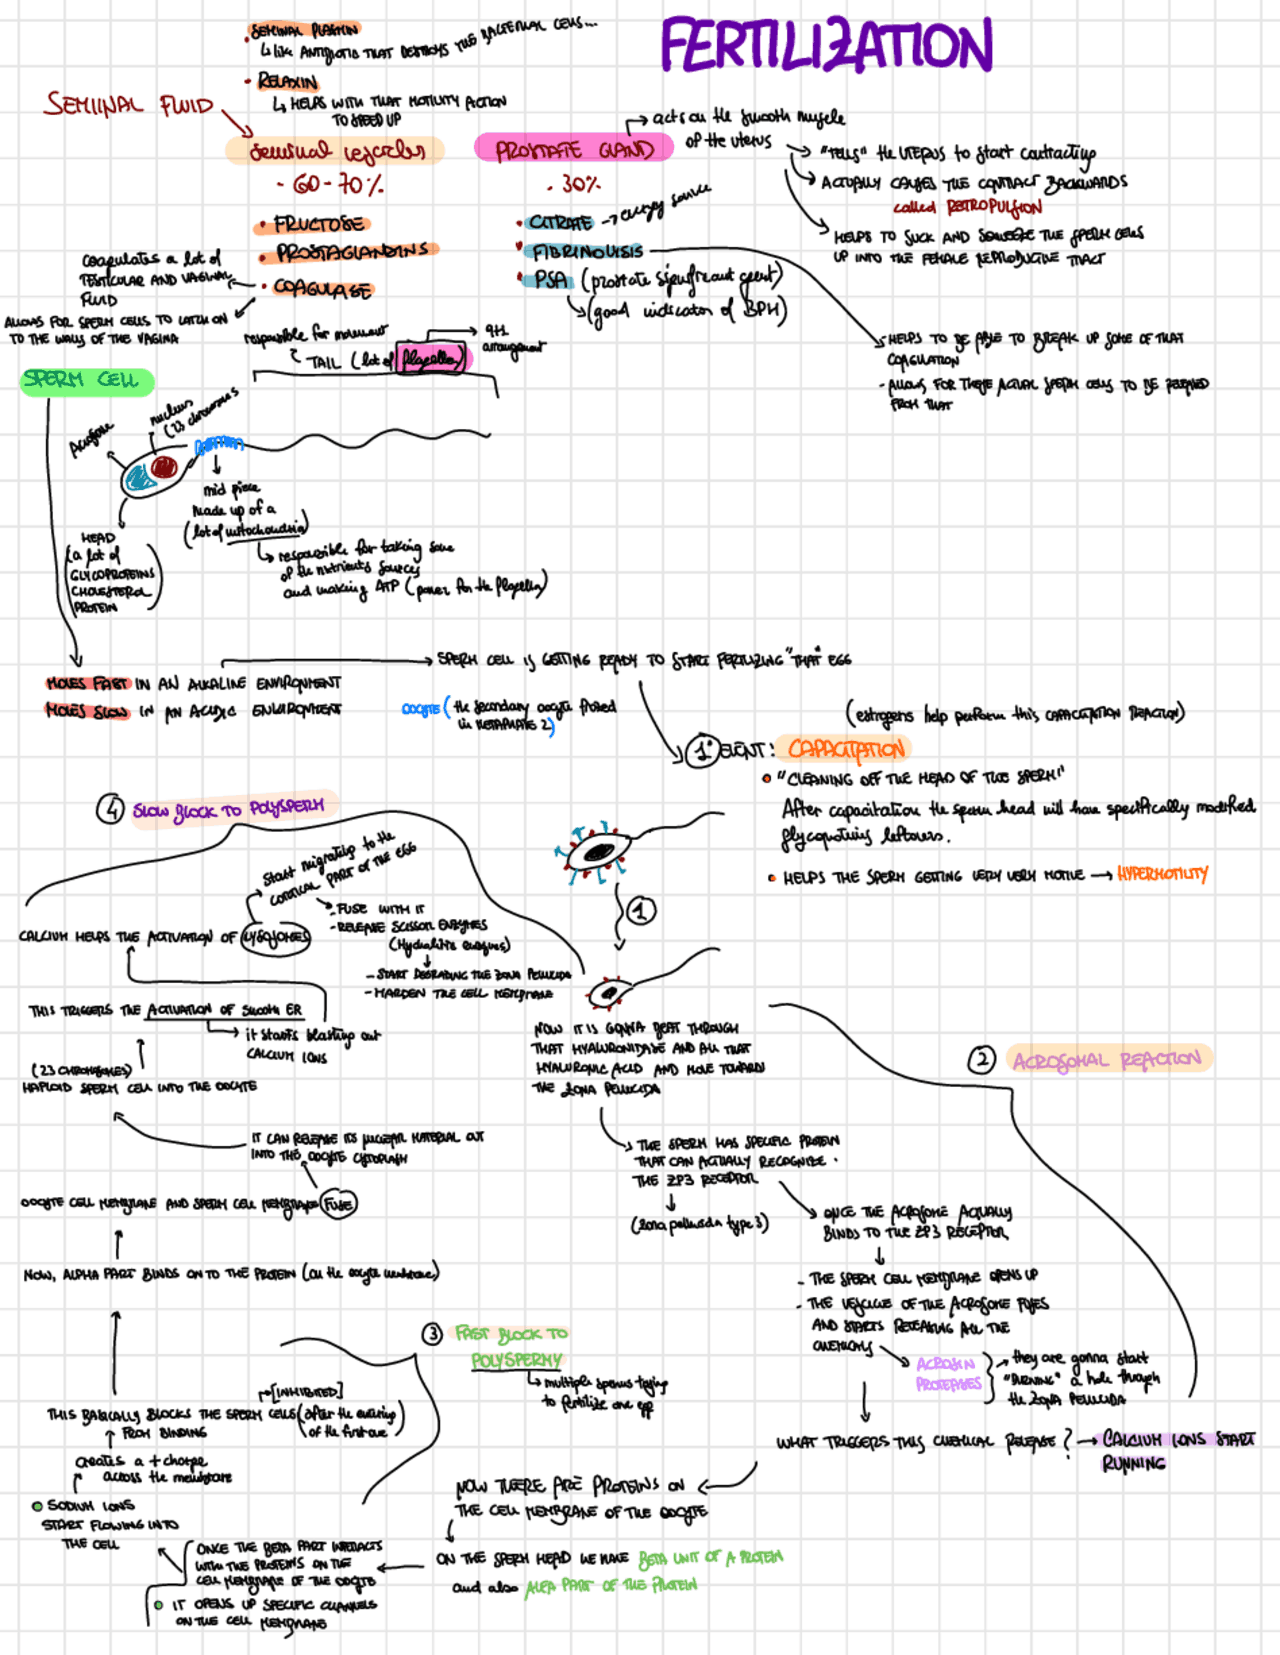 FERTILIZATION
SEMINAL PLASMIN
↳ like ANTIBIOTIC THAT DESTROYS THE BACTERIAL CELLS...
RELAXIN
↳ HELPS WITH THAT MOTILITY ACTION
TO SPEED UP
SEMINAL FLUID
Seminal vesicles
- 60-70%
• FRUCTOSE
• PROSTAGLANDINS
• COAGULASE
Coagulates a lot of
TESTICULAR AND VAGINAL
FLUID
ALLOWS FOR SPERM CELLS TO LATCH ON
TO THE WALLS OF THE VAGINA
PROSTATE GLAND
- 30%
• CITRATE → energy source
• FIBRINOLISIS
• PSA (prostate significant agent)
(good indicator of BPH)
acts on the smooth muscle
of the uterus
"TELLS" the UTERUS to start contracting
ACTUALLY CAUSES THE CONTRACT BACKWARDS
called RETROPULSION
HELPS TO SUCK AND SQUEEZE THE SPERM CELLS
UP INTO THE FEMALE REPRODUCTIVE TRACT
- HELPS TO BE ABLE TO BREAK UP SOME OF THAT
COAGULATION
- ALLOWS FOR THESE ACTUAL SPERM CELLS TO BE RELEASED
FROM THAT
responsible for movement
TAIL (lot of flagella)
9+2
arrangement
SPERM CELL
Acrosome
nucleus
(23 chromosomes
mid piece
made up of a
(lot of mitochondria)
↳ responsible for taking some
of the nutrients sources
and making ATP (power for the flagella)
HEAD
(a lot of
GLYCOPROTEINS
CHOLESTEROL
PROTEIN)
MOVES FAST IN AN ALKALINE ENVIRONMENT
MOVES SLOW IN AN ACIDIC ENVIRONMENT
SPERM CELL IS GETTING READY TO START FERTILIZING "THAT" EGG
OOCYTE (the secondary oocyte freezed
in METAPHASE 2)
(estrogens help perform this CAPACITATION REACTION)
1° EVENT: CAPACITATION
• "CLEANING OFF THE HEAD OF THE SPERM!"
After capacitation the sperm head will have specifically modified
glycoproteins leftovers.
• HELPS THE SPERM GETTING VERY VERY MOTILE → HYPERMOTILITY
4 SLOW BLOCK TO POLYSPERM
start migrating to the
CORTICAL PART OF THE EGG
- FUSE WITH IT
- RELEASE SCISSOR ENZYMES
(Hydrolitic enzymes)
- START DEGRADING THE ZONA PELLUCIDA
- HARDEN THE CELL MEMBRANE
CALCIUM HELPS THE ACTIVATION OF LYSOSOMES
THIS TRIGGERS THE ACTIVATION OF SMOOTH ER
it starts blasting out
CALCIUM IONS
(23 CHROMOSOMES)
HAPLOID SPERM CELL INTO THE OOCYTE
IT CAN RELEASE ITS NUCLEAR MATERIAL OUT
INTO THE OOCYTE CYTOPLASM
OOCYTE CELL MEMBRANE AND SPERM CELL MEMBRANE FUSE
NOW, ALPHA PART BINDS ON TO THE PROTEIN (on the oocyte membrane)
1
NOW IT IS GONNA BEAT THROUGH
THAT HYALURONIDASE AND ALL THAT
HYALURONIC ACID AND MOVE TOWARDS
THE ZONA PELLUCIDA
THE SPERM HAS SPECIFIC PROTEIN
THAT CAN ACTUALLY RECOGNIZE
THE ZP3 RECEPTOR
(zona pellucida type 3)
2 ACROSOMAL REACTION
ONCE THE ACROSOME ACTUALLY
BINDS TO THE ZP3 RECEPTOR
- THE SPERM CELL MEMBRANE OPENS UP
- THE VESCICLE OF THE ACROSOME FUSES
AND STARTS RELEASING ALL THE
CHEMICALS
ACROSIN
PROTEASES
they are gonna start
"BURNING" a hole though
the ZONA PELLUCIDA
WHAT TRIGGERS THIS CHEMICAL RELEASE? → CALCIUM IONS START
RUNNING
3 FAST BLOCK TO
POLYSPERMY
multiple sperms trying
to fertilize one egg
[INHIBITED]
THIS BASICALLY BLOCKS THE SPERM CELLS (after the entering
of the first one)
FROM BINDING
creates a + charge
across the membrane
SODIUM IONS
START FLOWING INTO
THE CELL
NOW THERE ARE PROTEINS ON
THE CELL MEMBRANE OF THE OOCYTE
ON THE SPERM HEAD WE HAVE BETA UNIT OF A PROTEIN
and also ALFA PART OF THE PROTEIN
ONCE THE BETA PART INTERACTS
WITH THE PROTEINS ON THE
CELL MEMBRANE OF THE OOCYTE
IT OPENS UP SPECIFIC CHANNELS
ON THE CELL MEMBRANE